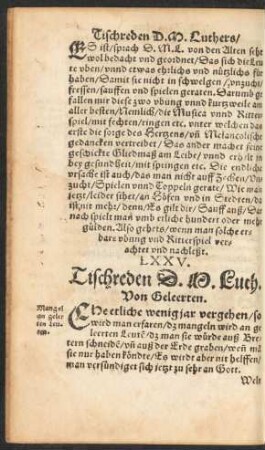 Tischreden D. M. Luthers/
ES ist/sprach D. M. L. von den Alten sehr
wol bedacht vnd geordnet/Das sich die Leu
te vben/vnnd etwas ehrlichs vnd nützlichs für
haben/Damit sie nicht in schwelgen/vnzucht/
fressen/sauffen vnd spielen geraten. Darumb ge
fallen mir diese zwo vbung vnd kurtzweile am
aller besten/Nemlich/die Musica vnnd Ritter
spiel/mit fechten/ringen etc. vnter welchen das
erste die sorge des Hertzens/vñ Melancolische
gedancken vertreibet/Das ander machet feine
geschickte Gliedmaß am Leibe/vnnd erhelt in
bey gesundheit/mit springen etc. Die endliche
vrsache ist auch/das man nicht auff Zechen/Vn
zucht/Spielen vnnd Toppeln gerate/Wie man
jetzt/leider sihet/an Höfen vnd in Stedten/da
ist nit mehr/denn/Es gilt dir/Sauff auß/Dar
nach spielt man vmb etliche hundert oder mehr
gülden. Also gehets/wenn man solche ehr
bare vbung vnd Ritterspiel ver/
achtet vnd nachleßt.
LXXV.
Tischreden D. M. Luth.
Von Geleerten.
Mangel
an geler
ten Leu
ten.
EHe etliche wenig jar vergehen/so
wird man erfaren/dz mangeln wird an ge
leerten Leutẽ/dz man sie würde auß Bre
tern schneidẽ/vñ auß der Erde graben/weñ mã
sie nur haben köndte/Es wirdt aber nit helffen/
man versündiget sich jetzt zu sehr an Gott.
Welt